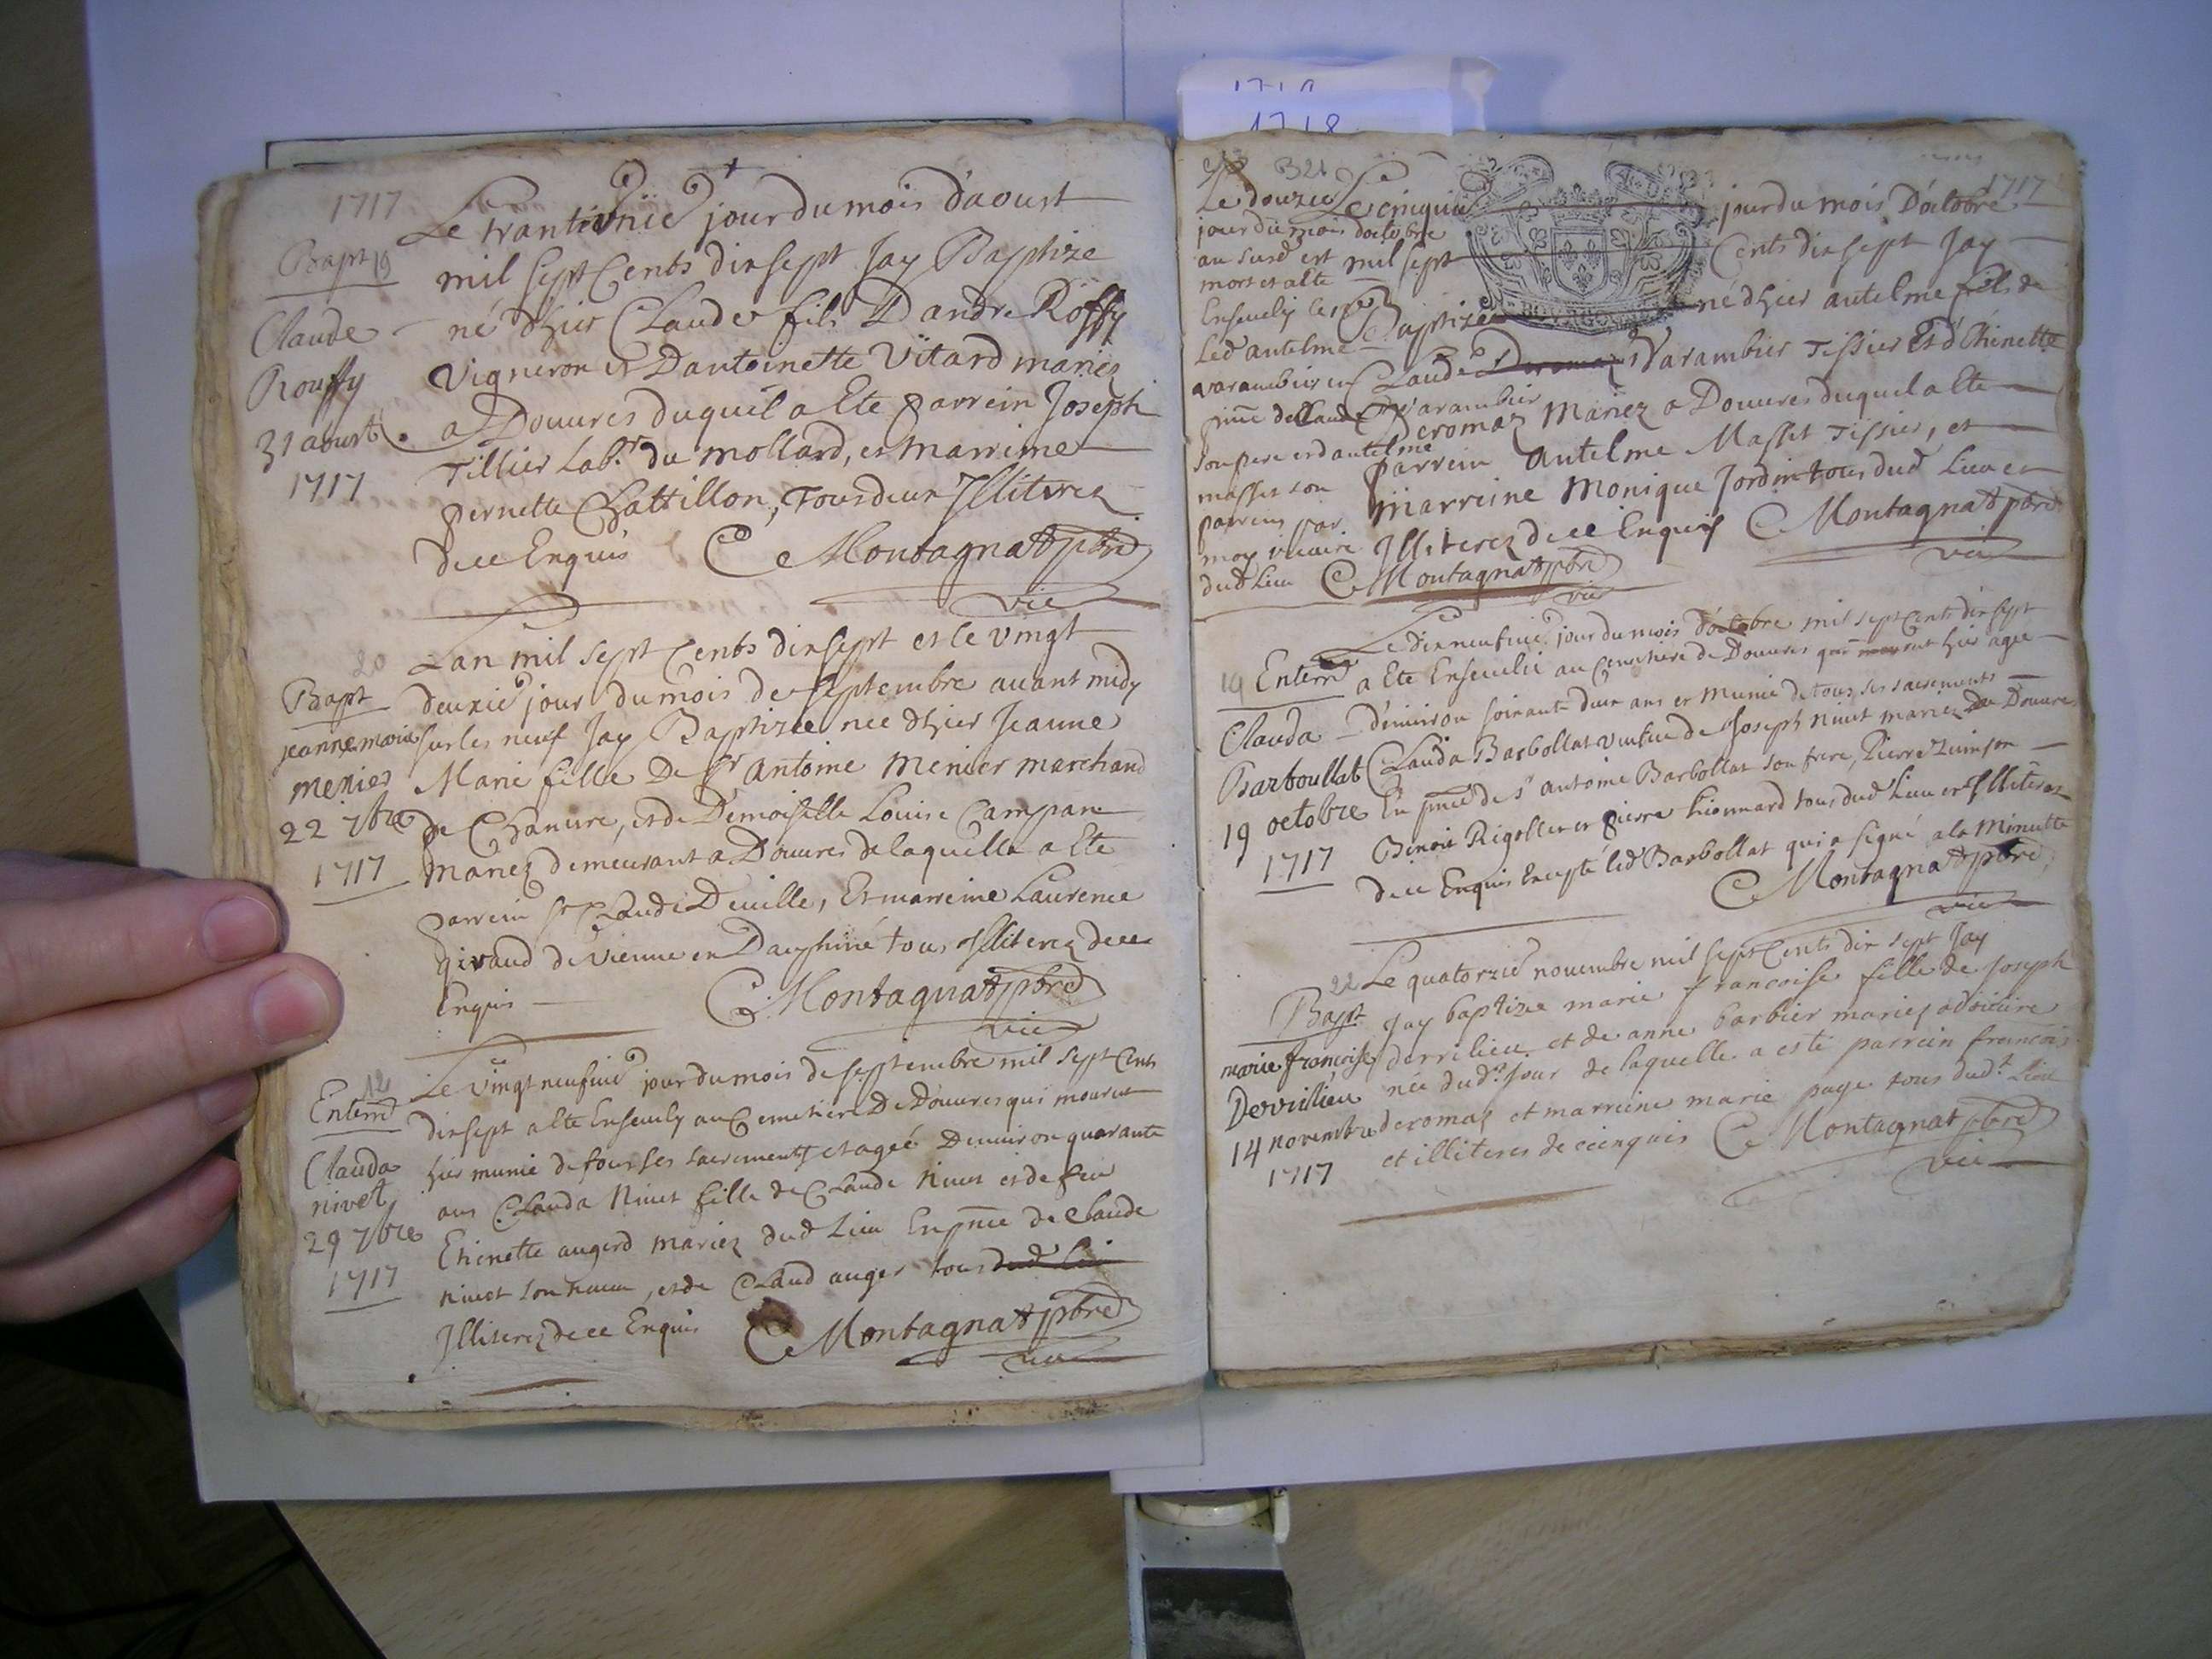 1718
1717
Le trantiunie jour du mois d'aoust
Bapt 19
mil sept Cents dix sept Jay Baptize
Claude
né d'hier Claude fils D'andre Roffy
Rouffy
vigneron et D'antoinette Vitard mariez
31 aoust
a Douures duquel a Ete parrein Joseph
1717
Tillier Labr. du mollard, et marreine
pernette Chattillon, Tous deux Illiterez
de ce Enquis C Montagnat pbre
vic
20
Lan mil sept Cents dix sept et le vingt
Bapt
deuxie jour du mois de septembre auant midy
jeanne marie
sur les neuf Jay Baptizee nee d'hier Jeanne
menier
Marie fille De sr antoine Menier marchand
22 7bre
de Chanure, et de Demoiselle Louise Campan
1717
mariez demeurant a Douures de laquelle a Ete
parrein sr Claude Deuille, Et marreine Laurence
giraud de Vienne en Dauphiné tous Illiterez de ce
Enquis C Montagnat pbre
vic
12
Le vingt neufuie jour du mois de septembre mil sept Cents
Enterrt
dix sept a Ete Enseuely au Cemetiere De Douures qui mourut
Clauda
hier munie de tous ses sacrements et agée Denuiron quarante
nivet
ans Clauda Niuet fille de Claude Niuet et de feu
29 7bre
Etienette augerd mariez dud Lieu En pnce de Claude
1717
niuet son neueu, et de Claud auger tous dud Lieu
Illiterez de ce Enquis C Montagnat pbre
vic
321
1717
Le cinquie jour du mois D'octobre
mil sept Cents dix sept Jay
Baptize né d'hier antelme fils de
Claude Varambier Tissier Et d'Ethienette
Varambier
Deromaz Mariez a Douures duquel a Ete
parrein Antelme Masset Tissier, et
marreine Monique Jordin tous dud Lieu et
Illiterez de ce Enquis C Montagnat pbre
vic
Le douzie
jour du mois d'octobre
au susd est
mort et a Ete
Enseuely
Led antelme
varambier en
pnce de Claude
son pere et d'antelme
masset son
parrein par
moy vicaire
dud Lieu C Montagnat pbre
vic
Le dix neufuie jour du mois d'octobre mil sept Cents dix sept
19 Enterrt
a Ete Enseuelie au Cemetiere de Douures qui mourut hier agee
Clauda
d'enuiron soixante deux ans et Munie de tous ses sacrements
Barboullat
Clauda Barbollat veufue de Joseph Niuet mariez de Douures
19 octobre
En pnce de sr antoine Barbollat son frere, Pierre
1717
Benoit Rigollet et pierre Lionnard tous dud Lieu et Illiterez
de ce Enquis Excepté led Barbollat qui a signé a la Minutte
C Montagnat pbre
vic
22
Le quatorzie nouembre mil sept Cents dix sept Jay
Bapt
Jay baptizee marie francoise fille de Joseph
marie françoise
derrilieu et de anne barbier mariez a douure
Dervillieu
née dudt. Jour de laquelle a esté parrein francois
14 novembre
deromaz et marreine marie page tous dudt. Lieu
1717
et illiteres de ce enquis C Montagnat pbre
vic